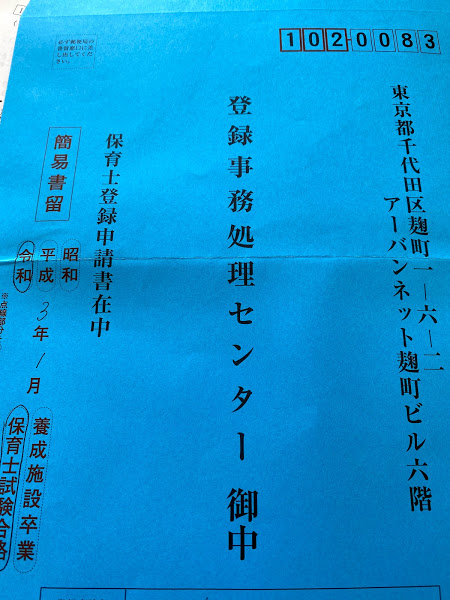 102-0083
東京都千代田区麹町一―六―二
アーバンネット麹町ビル六階
登録事務処理センター 御中
保育士登録申請書在中
必ず郵便局の
書留窓口に差
し出してくだ
さい。
簡易書留
昭和
平成
令和
3年1月
養成施設卒業
保育士試験合格
※点線部分